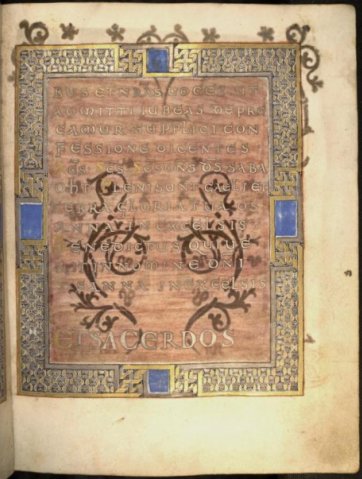 BUS ET NRAS VOCES UT
ADMITTI IUBEAS DEPRE
CAMUR SUPPLICI CON
FESSIONE DICENTES
SCS SCS SCS DNS DS SABA
PLENI SUNT CELI ET
TERRA GLORIA TUA OS
ANNA IN EXCELSIS
BENEDICTUS QUI UE
NIT IN NOMINE DNI
OSANNA IN EXCELSIS
ET SACERDOS